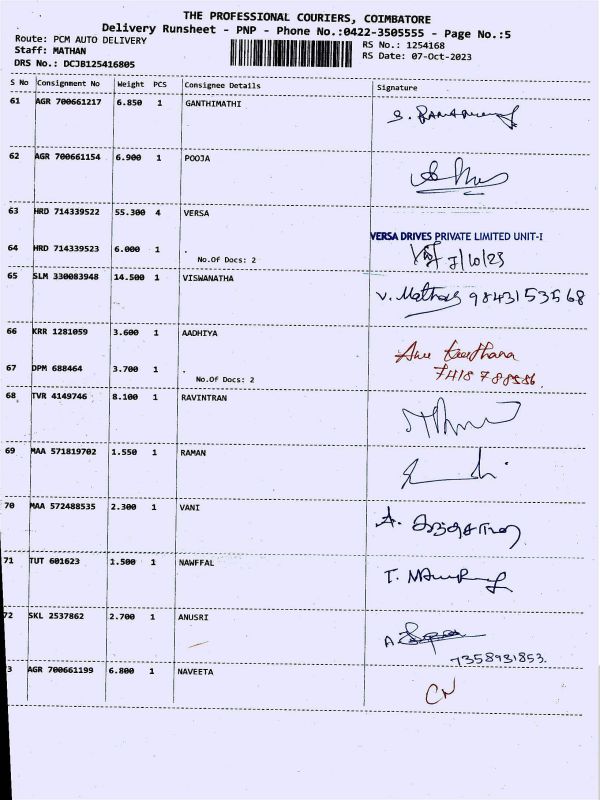 THE PROFESSIONAL COURIERS, COIMBATORE
Delivery Runsheet - PNP - Phone No.:0422-3505555 - Page No.:5
Route: PCM AUTO DELIVERY
Staff: MATHAN
DRS No.: DCJB125416805
RS No.: 1254168
RS Date: 07-Oct-2023
S No Consignment No Weight PCS Consignee Details Signature
61 AGR 700661217 6.850 1 GANTHIMATHI
62 AGR 700661154 6.900 1 POOJA
63 HRD 714339522 55.300 4 VERSA
VERSA DRIVES PRIVATE LIMITED UNIT-I
64 HRD 714339523 6.000 1 . 7/10/23
No.Of Docs: 2
65 SLM 330083948 14.500 1 VISWANATHA
V. Mathas 9843153568
66 KRR 1281059 3.600 1 AADHIYA
Anu Keerthana
67 DPM 688464 3.700 1 . 7418788556
No.Of Docs: 2
68 TVR 4149746 8.100 1 RAVINTRAN
69 MAA 571819702 1.550 1 RAMAN
70 MAA 572488535 2.300 1 VANI
71 TUT 601623 1.500 1 NAWFFAL
72 SKL 2537862 2.700 1 ANUSRI
7358931853.
3 AGR 700661199 6.800 1 NAVEETA
CN